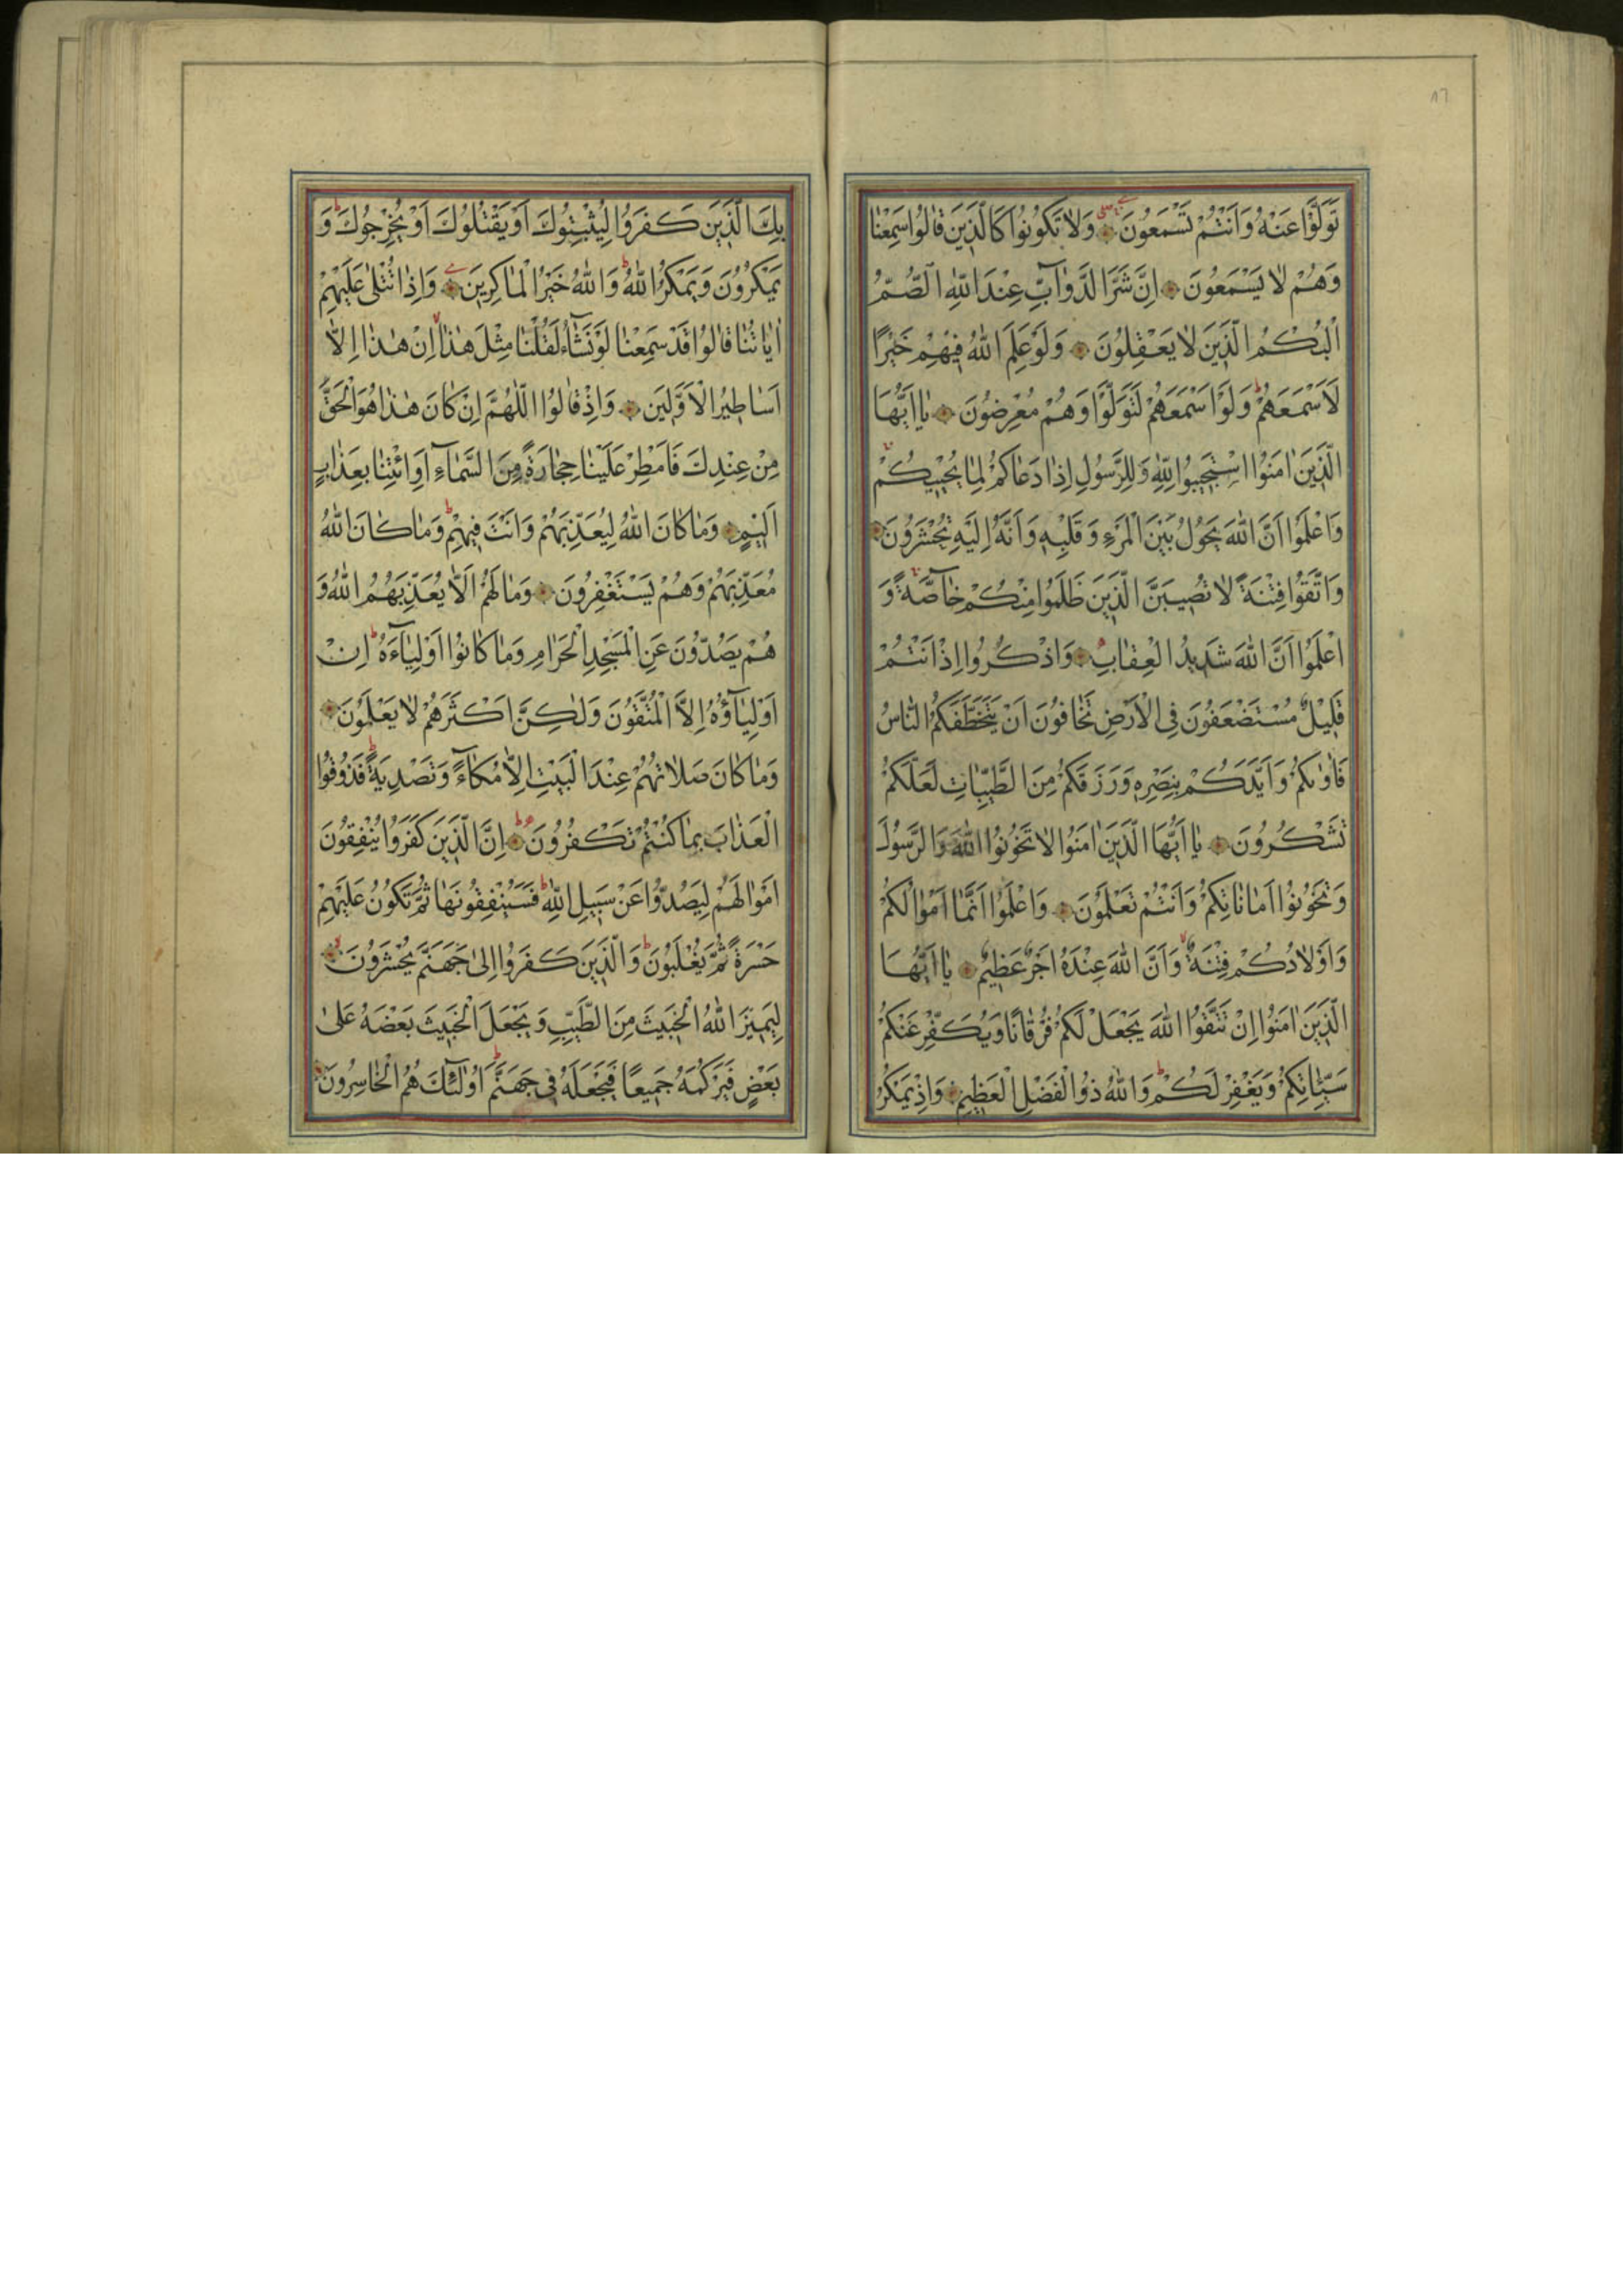 ٨٦
تَوَلَّوْا عَنْهُ وَاَنْتُمْ تَسْمَعُونَ وَلَا تَكُونُوا كَالَّذٖينَ قَالُوا سَمِعْنَا
وَهُمْ لَا يَسْمَعُونَ اِنَّ شَرَّ الدَّوَآبِّ عِنْدَ اللّٰهِ الصُّمُّ
الْبُكْمُ الَّذٖينَ لَا يَعْقِلُونَ وَلَوْ عَلِمَ اللّٰهُ فٖيهِمْ خَيْرًا
لَاَسْمَعَهُمْ وَلَوْ اَسْمَعَهُمْ لَتَوَلَّوْا وَهُمْ مُعْرِضُونَ يَا اَيُّهَا
الَّذٖينَ اٰمَنُوا اسْتَجٖيبُوا لِلّٰهِ وَلِلرَّسُولِ اِذَا دَعَاكُمْ لِمَا يُحْيٖيكُمْ
وَاعْلَمُوا اَنَّ اللّٰهَ يَحُولُ بَيْنَ الْمَرْءِ وَقَلْبِهٖ وَاَنَّهُ اِلَيْهِ تُحْشَرُونَ
وَاتَّقُوا فِتْنَةً لَا تُصٖيبَنَّ الَّذٖينَ ظَلَمُوا مِنْكُمْ خَآصَّةً وَ
اعْلَمُوا اَنَّ اللّٰهَ شَدٖيدُ الْعِقَابِ وَاذْكُرُوا اِذْ اَنْتُمْ
قَلٖيلٌ مُسْتَضْعَفُونَ فِى الْاَرْضِ تَخَافُونَ اَنْ يَتَخَطَّفَكُمُ النَّاسُ
فَاٰوٰيكُمْ وَاَيَّدَكُمْ بِنَصْرِهٖ وَرَزَقَكُمْ مِنَ الطَّيِّبَاتِ لَعَلَّكُمْ
تَشْكُرُونَ يَا اَيُّهَا الَّذٖينَ اٰمَنُوا لَا تَخُونُوا اللّٰهَ وَالرَّسُولَ
وَتَخُونُوا اَمَانَاتِكُمْ وَاَنْتُمْ تَعْلَمُونَ وَاعْلَمُوا اَنَّمَا اَمْوَالُكُمْ
وَاَوْلَادُكُمْ فِتْنَةٌ وَاَنَّ اللّٰهَ عِنْدَهُ اَجْرٌ عَظٖيمٌ يَا اَيُّهَا
الَّذٖينَ اٰمَنُوا اِنْ تَتَّقُوا اللّٰهَ يَجْعَلْ لَكُمْ فُرْقَانًا وَيُكَفِّرْ عَنْكُمْ
سَيِّئَاتِكُمْ وَيَغْفِرْ لَكُمْ وَاللّٰهُ ذُو الْفَضْلِ الْعَظٖيمِ وَاِذْ يَمْكُرُ
بِكَ الَّذٖينَ كَفَرُوا لِيُثْبِتُوكَ اَوْ يَقْتُلُوكَ اَوْ يُخْرِجُوكَ وَ
يَمْكُرُونَ وَيَمْكُرُ اللّٰهُ وَاللّٰهُ خَيْرُ الْمَاكِرٖينَ وَاِذَا تُتْلٰى عَلَيْهِمْ
اٰيَاتُنَا قَالُوا قَدْ سَمِعْنَا لَوْ نَشَآءُ لَقُلْنَا مِثْلَ هٰذَا اِنْ هٰذَا اِلَّا
اَسَاطٖيرُ الْاَوَّلٖينَ وَاِذْ قَالُوا اللّٰهُمَّ اِنْ كَانَ هٰذَا هُوَ الْحَقَّ
مِنْ عِنْدِكَ فَاَمْطِرْ عَلَيْنَا حِجَارَةً مِنَ السَّمَآءِ اَوِ ائْتِنَا بِعَذَابٍ
اَلٖيمٍ وَمَا كَانَ اللّٰهُ لِيُعَذِّبَهُمْ وَاَنْتَ فٖيهِمْ وَمَا كَانَ اللّٰهُ
مُعَذِّبَهُمْ وَهُمْ يَسْتَغْفِرُونَ وَمَا لَهُمْ اَلَّا يُعَذِّبَهُمُ اللّٰهُ وَ
هُمْ يَصُدُّونَ عَنِ الْمَسْجِدِ الْحَرَامِ وَمَا كَانُوا اَوْلِيَآءَهُ اِنْ
اَوْلِيَآؤُهُ اِلَّا الْمُتَّقُونَ وَلٰكِنَّ اَكْثَرَهُمْ لَا يَعْلَمُونَ
وَمَا كَانَ صَلَاتُهُمْ عِنْدَ الْبَيْتِ اِلَّا مُكَآءً وَتَصْدِيَةً فَذُوقُوا
الْعَذَابَ بِمَا كُنْتُمْ تَكْفُرُونَ اِنَّ الَّذٖينَ كَفَرُوا يُنْفِقُونَ
اَمْوَالَهُمْ لِيَصُدُّوا عَنْ سَبٖيلِ اللّٰهِ فَسَيُنْفِقُونَهَا ثُمَّ تَكُونُ عَلَيْهِمْ
حَسْرَةً ثُمَّ يُغْلَبُونَ وَالَّذٖينَ كَفَرُوا اِلٰى جَهَنَّمَ يُحْشَرُونَ
لِيَمٖيزَ اللّٰهُ الْخَبٖيثَ مِنَ الطَّيِّبِ وَيَجْعَلَ الْخَبٖيثَ بَعْضَهُ عَلٰى
بَعْضٍ فَيَرْكُمَهُ جَمٖيعًا فَيَجْعَلَهُ فٖى جَهَنَّمَ اُولٰٓئِكَ هُمُ الْخَاسِرُونَ